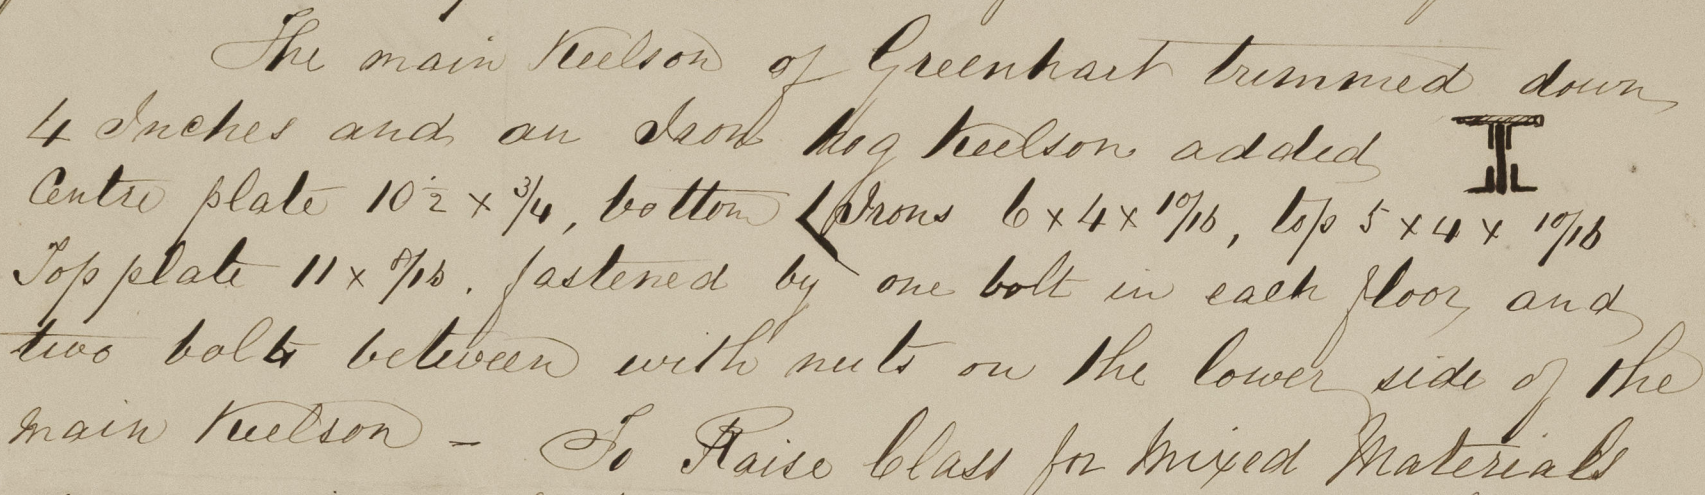 The main Keelson of Greenhart trimmed down
4 Inches and an Iron Hog Keelson added
Centre plate 10½ x 3/4, bottom < Irons 6 x 4 x 10/16, top 5 x 4 x 10/16
Top plate 11 x /16. fastened by one bolt in each floor and
two bolts between with nuts on the lower side of the
main Keelson - To Raise Class for Mixed Materials